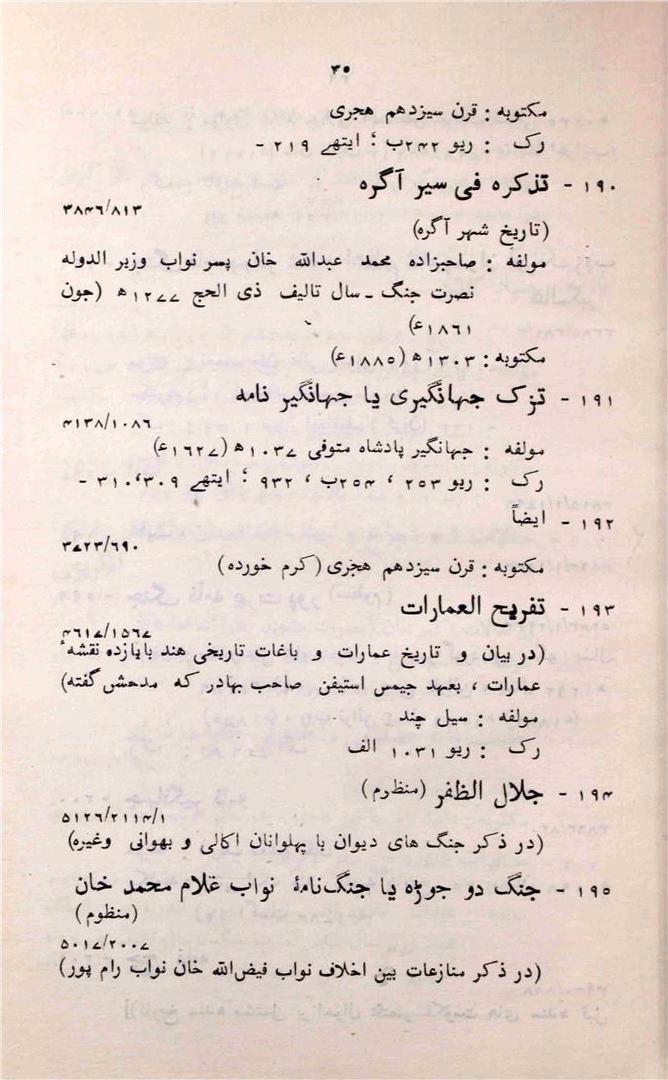 ۳۰
مکتوبه : قرن سیزدهم هجری
رک : ریو ۲۴۲ب ؛ ایتهے ۲۱۹ -
۱۹۰ - تذکره فی سیر آگره
۳۸۴۶/۸۱۳
(تاریخ شهر آگره)
مولفه : صاحبزاده محمد عبدالله خان پسر نواب وزیر الدوله
نصرت جنگ - سال تالیف ذی الحج ۱۲۷۷ھ (جون
۱۸۶۱ع)
مکتوبه : ۱۳۰۳ھ (۱۸۸۵ع)
۱۹۱ - تزک جهانگیری یا جهانگیر نامه
۴۱۳۸/۱۰۸۶
مولفه : جهانگیر پادشاه متوفی ۱۰۳۷ھ (۱۶۲۷ع)
رک : ریو ۲۵۳ ، ۲۵۴ب ، ۹۳۲ ؛ ایتهے ۳۰۹،۳۱۰ -
۱۹۲ - ایضاً
۳۷۲۳/۶۹۰
مکتوبه : قرن سیزدهم هجری (کرم خورده)
۱۹۳ - تفریح العمارات
۴۶۱۷/۱۵۶۷
(در بیان و تاریخ عمارات و باغات تاریخی هند بایازده نقشهٔ
عمارات ، بعهد جیمس استیفن صاحب بهادر که مدحش گفته)
مولفه : سیل چند
رک : ریو ۱۰۳۱ الف
۱۹۴ - جلال الظفر (منظوم)
۵۱۲۶/۲۱۱۴/۱
(در ذکر جنگ های دیوان با پهلوانان اکالی و بهوانی وغیره)
۱۹۵ - جنگ دو جوڑه یا جنگ‌نامهٔ نواب غلام محمد خان
(منظوم)
۵۰۱۷/۲۰۰۷
(در ذکر منازعات بین اخلاف نواب فیض‌الله خان نواب رام پور)